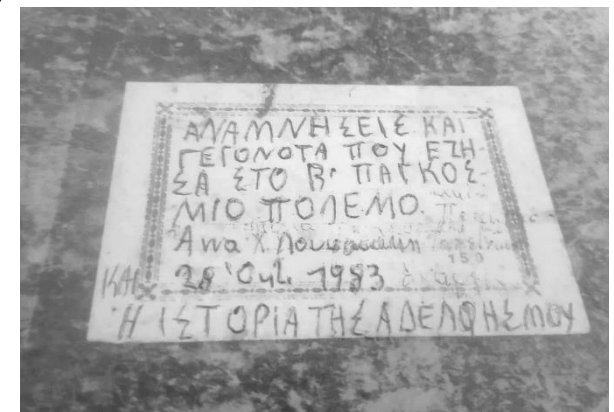 ΑΝΑΜΝΗΣΕΙΣ ΚΑΙ
ΓΕΓΟΝΟΤΑ ΠΟΥ ΕΖΗ-
ΣΑ ΣΤΟ Β' ΠΑΓΚΟΣ-
ΜΙΟ ΠΟΛΕΜΟ.
Άννα Χ.
ΚΑΙ 28 Όκτ. 1983
Ἡ ΙΣΤΟΡΙΑ ΤΗΣ ΑΔΕΛΦΗΣ ΜΟΥ